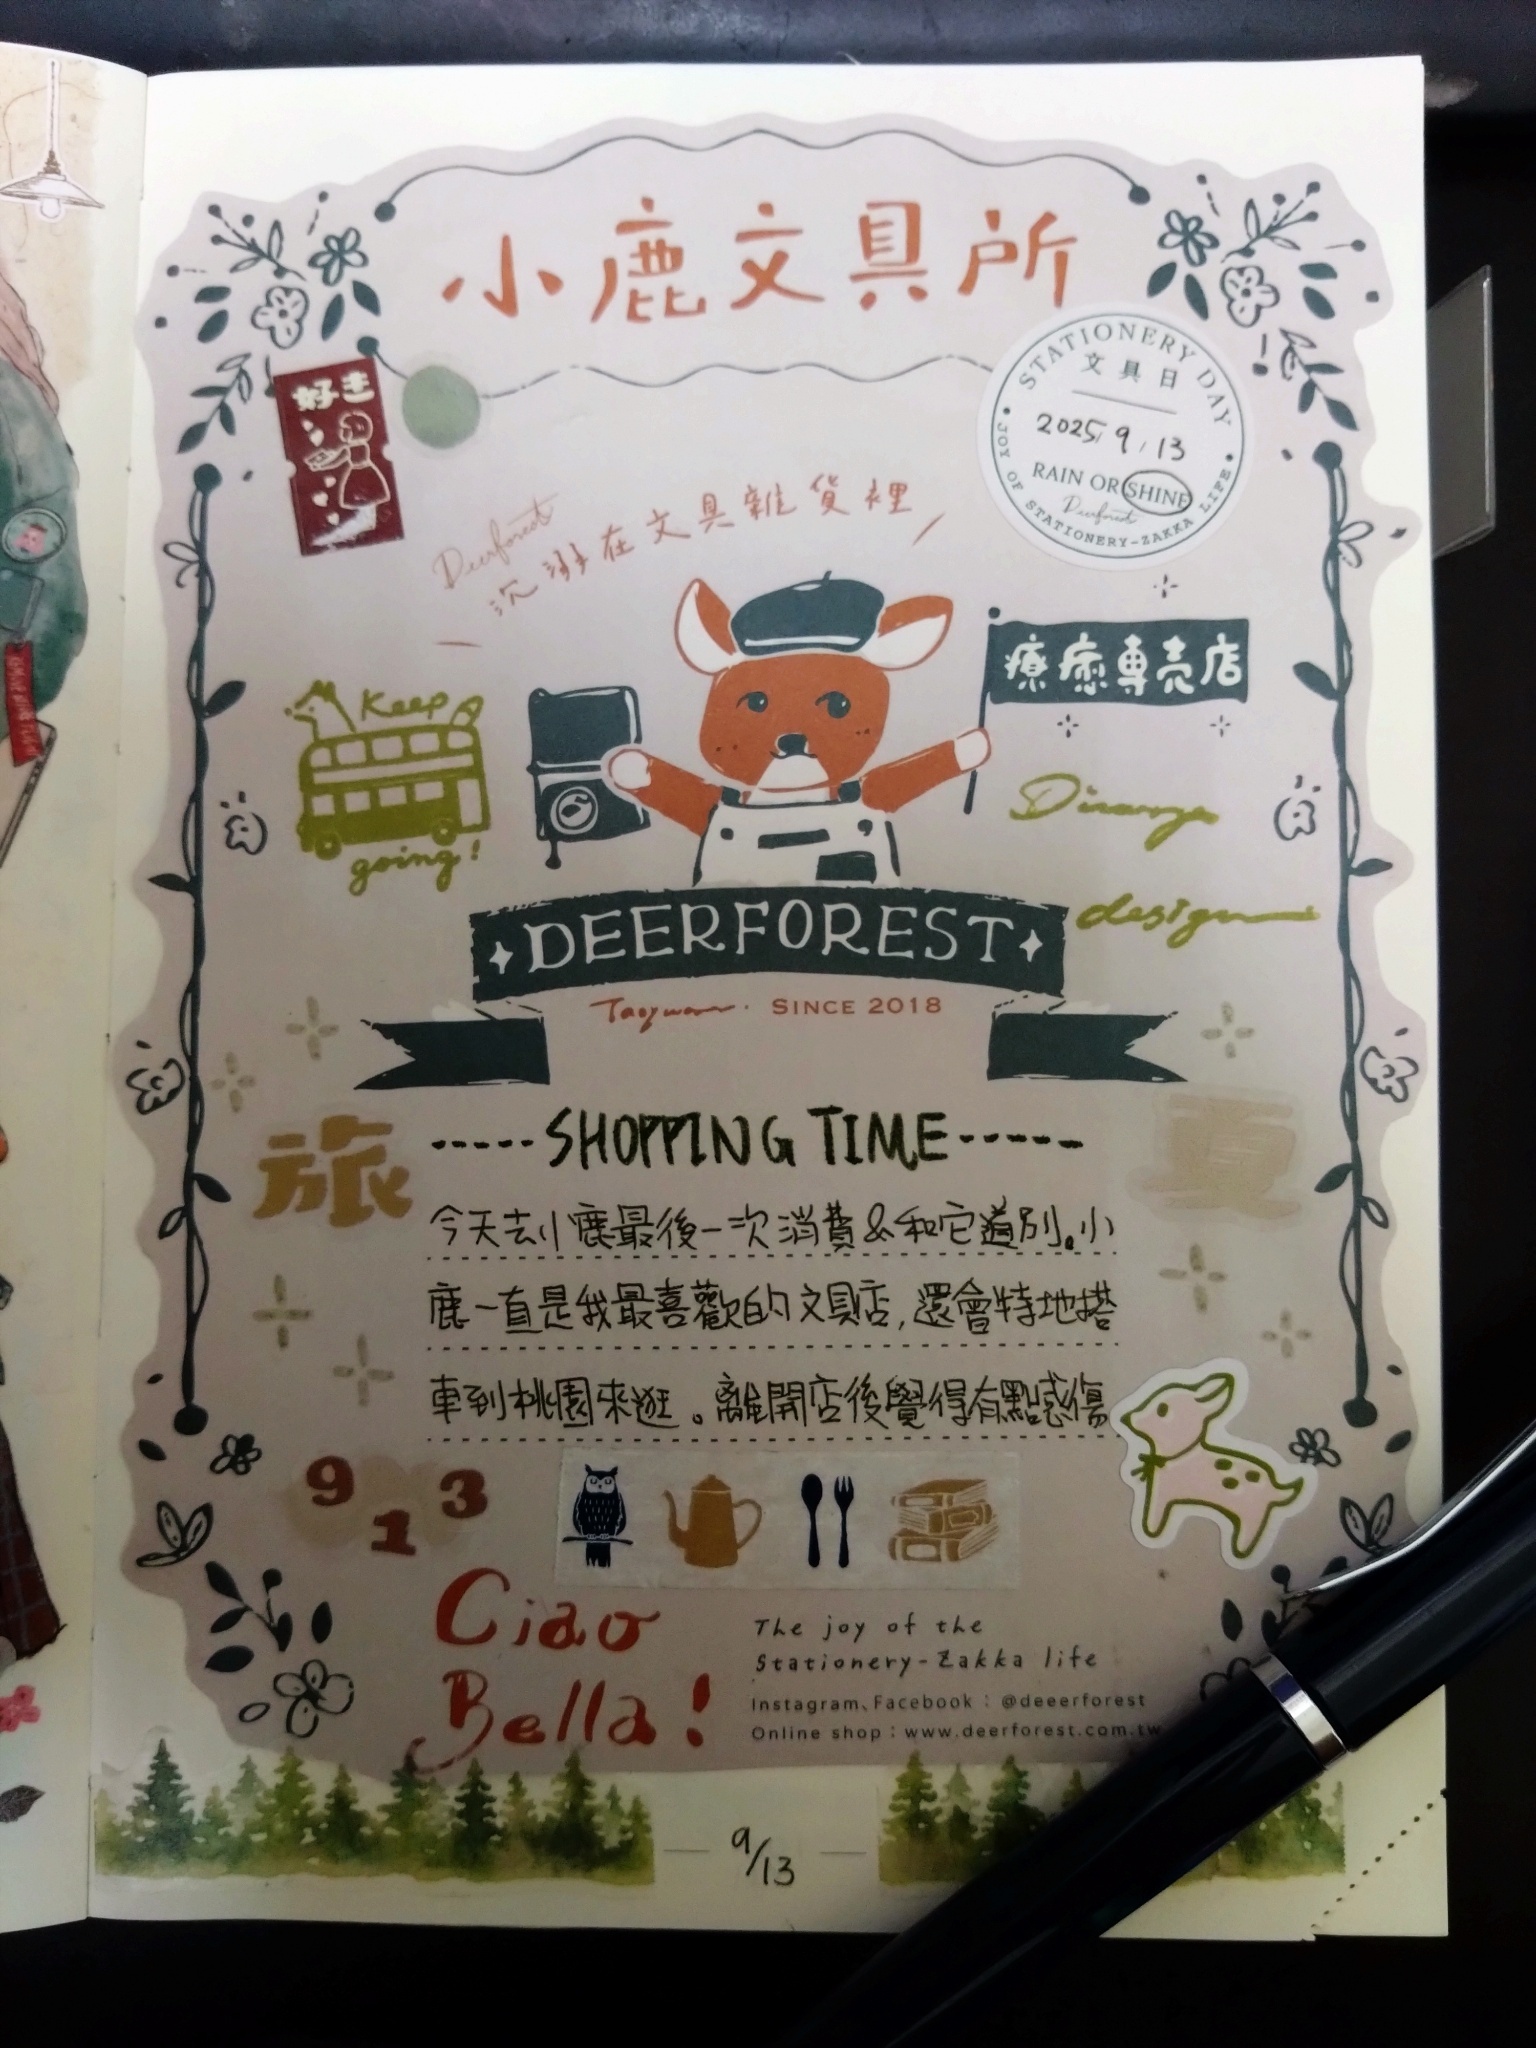 小鹿文具所
STATIONERY DAY
文具日
2025, 9, 13
RAIN OR SHINE
Deerforest
JOY OF STATIONERY-ZAKKA LIFE
好き
Deerforest
沉溺在文具雜貨裡
療癒專売店
Keep
going!
design
DEERFOREST
Taoyuan. SINCE 2018
旅
夏
-----SHOPPING TIME-----
今天去小鹿最後一次消費&和它道別。小
鹿一直是我最喜歡的文具店,還會特地搭
車到桃園來逛。離開店後覺得有點感傷
9 1 3
Ciao
Bella!
The joy of the
Stationery-Zakka life
Instagram、Facebook：@deeerforest
Online shop：www.deerforest.com.tw
9/13